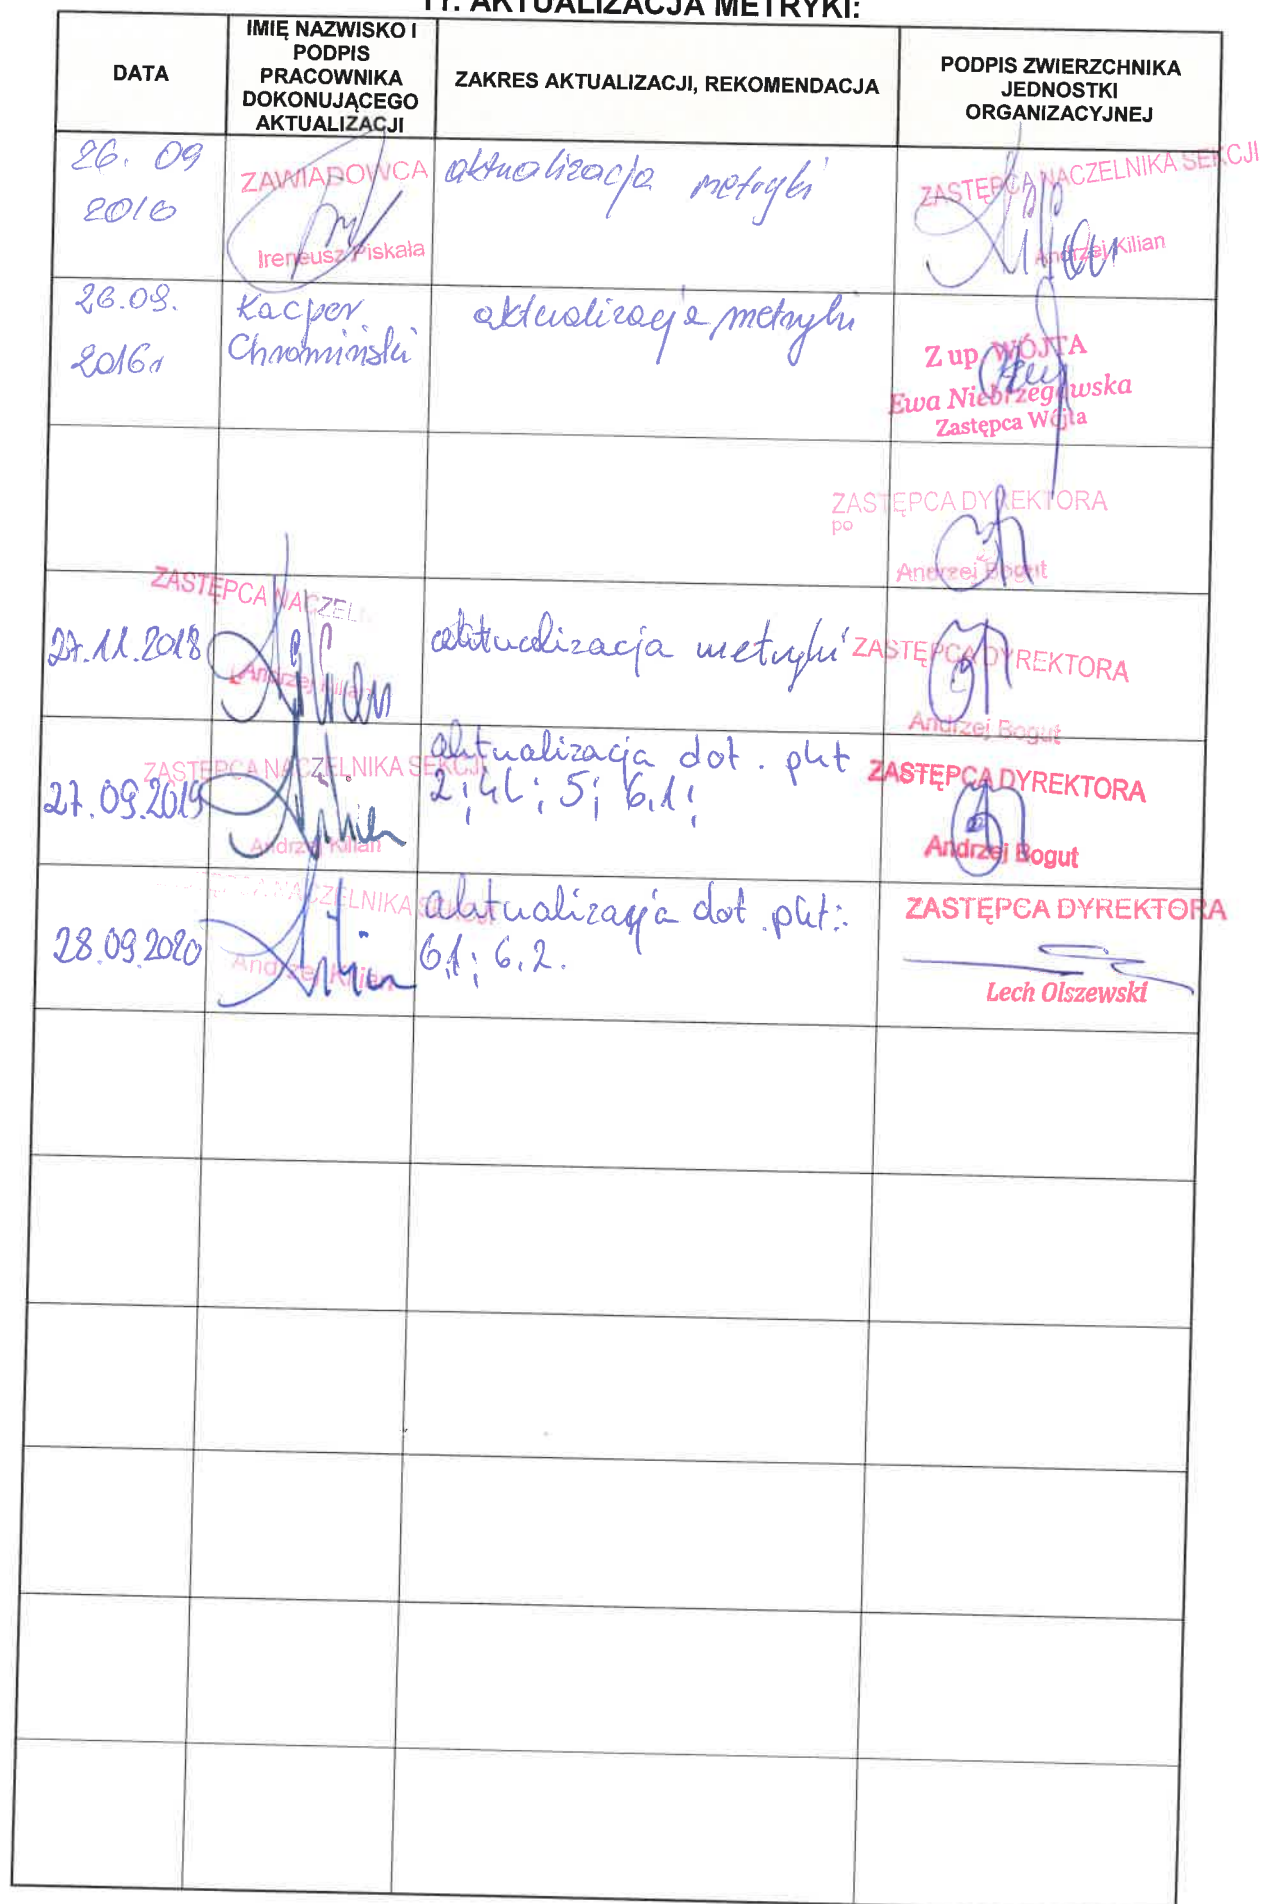 11. AKTUALIZACJA METRYKI:
DATA
IMIĘ NAZWISKO I
PODPIS
PRACOWNIKA
DOKONUJĄCEGO
AKTUALIZACJI
ZAKRES AKTUALIZACJI, REKOMENDACJA
PODPIS ZWIERZCHNIKA
JEDNOSTKI
ORGANIZACYJNEJ
26. 09
2016
ZAWIADOWCA
Ireneusz Piskała
aktualizacja metryki
ZASTĘPCA NACZELNIKA SEKCJI
Andrzej Kilian
26.09.
2016r
Kacper
Chromiński
aktualizacja metryki
Z up. WÓJTA
Ewa Niebrzegowska
Zastępca Wójta
ZASTĘPCA DYREKTORA
po
Andrzej Bogut
27.11.2018
ZASTĘPCA NACZELN
Andrzej Kilian
aktualizacja metryki
ZASTĘPCA DYREKTORA
Andrzej Bogut
27.09.2019
ZASTĘPCA NACZELNIKA SEKCJI
Andrzej Kilian
aktualizacja dot. pkt
5; 6.1;
ZASTĘPCA DYREKTORA
Andrzej Bogut
28.09.2020
ZASTĘPCA NACZELNIKA SEKCJI
Andrzej Kilian
aktualizacja dot. pkt:
6.1; 6.2.
ZASTĘPCA DYREKTORA
Lech Olszewski